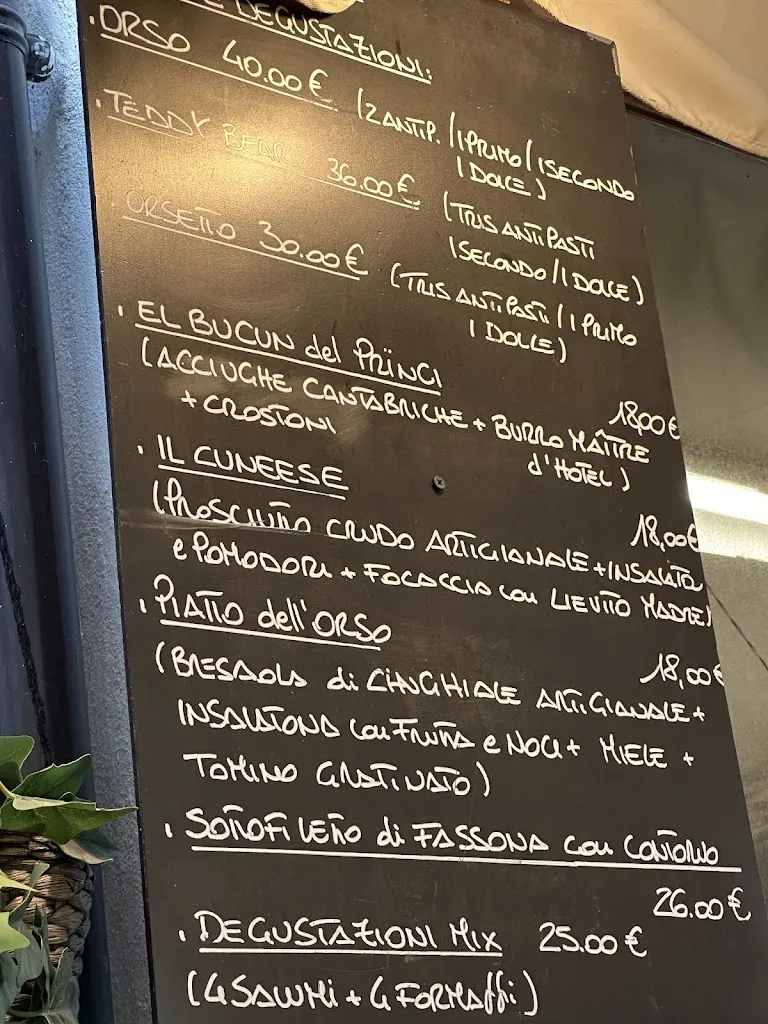 LE DEGUSTAZIONI:
. ORSO 40.00€ (2 ANTIP. / 1 PRIMO / 1 SECONDO
1 DOLCE)
. TEDDY BEAR 36.00€ (TRIS ANTIPASTI
1 SECONDO / 1 DOLCE)
. ORSETTO 30.00€ (TRIS ANTIPASTI / 1 PRIMO
1 DOLCE)
. EL BUCUN del PRÏNCI
18,00€
(ACCIUGHE CANTABRICHE + BURRO MAÎTRE
+ CROSTONI d'HOTEL)
. IL CUNEESE
18,00€
(PROSCIUTTO CRUDO ARTIGIANALE + INSALATA
e POMODORI + FOCACCIA con LIEVITO MADRE)
. PIATTO dell'ORSO
18,00€
(BRESAOLA di CINGHIALE ARTIGIANALE +
INSALATONA con FRUTTA e NOCI + MIELE +
TOMINO GRATINATO)
. SOTTOFILETTO di FASSONA con CONTORNO
26.00€
. DEGUSTAZIONI MIX 25.00€
(4 SALUMI + 4 FORMAGGI)